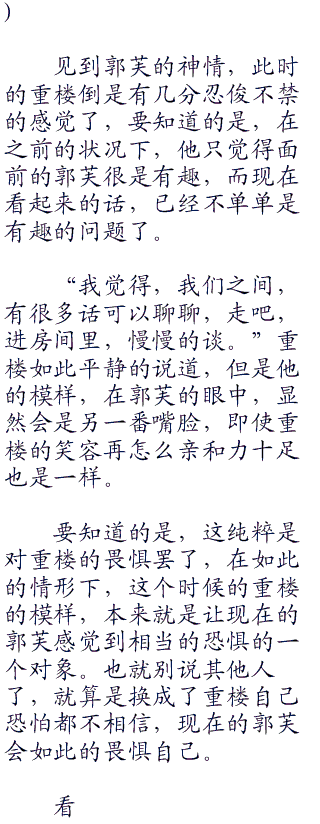 )
见到郭芙的神情，此时
的重楼倒是有几分忍俊不禁
的感觉了，要知道的是，在
之前的状况下，他只觉得面
前的郭芙很是有趣，而现在
看起来的话，已经不单单是
有趣的问题了。
“我觉得，我们之间，
有很多话可以聊聊，走吧，
进房间里，慢慢的谈。”重
楼如此平静的说道，但是他
的模样，在郭芙的眼中，显
然会是另一番嘴脸，即使重
楼的笑容再怎么亲和力十足
也是一样。
要知道的是，这纯粹是
对重楼的畏惧罢了，在如此
的情形下，这个时候的重楼
的模样，本来就是让现在的
郭芙感觉到相当的恐惧的一
个对象。也就别说其他人
了，就算是换成了重楼自己
恐怕都不相信，现在的郭芙
会如此的畏惧自己。
看